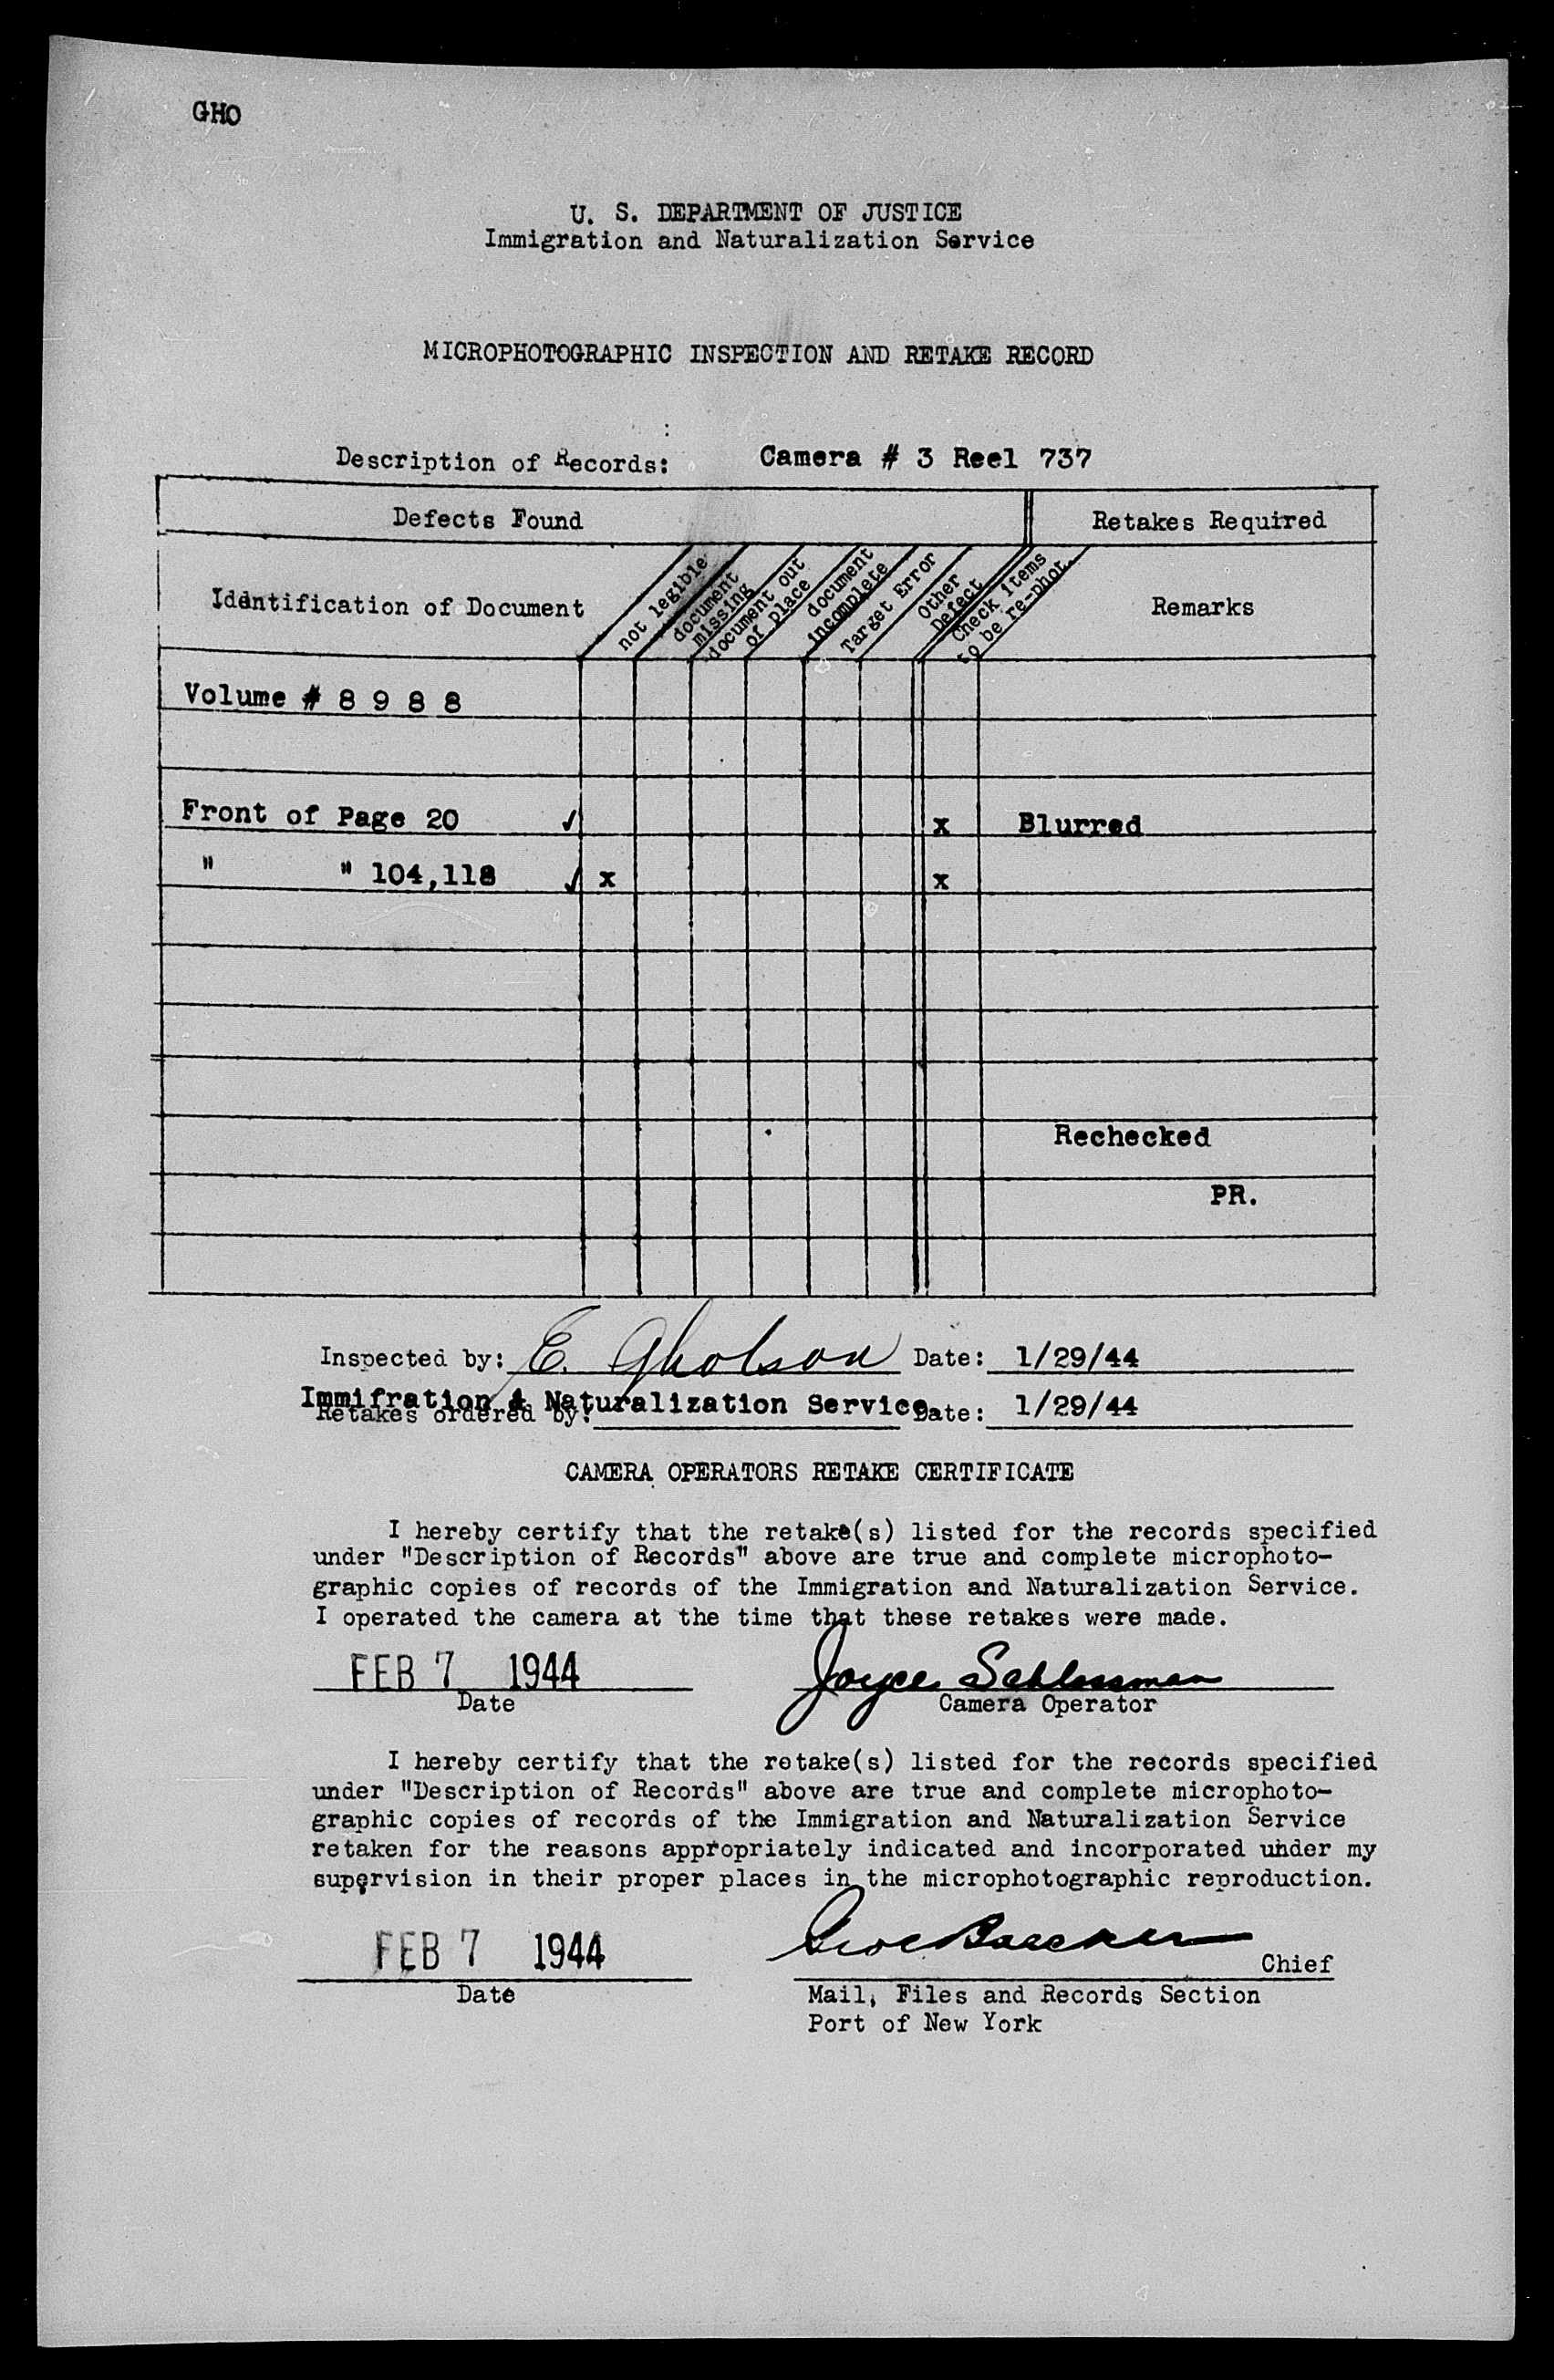 GHO
U. S. DEPARTMENT OF JUSTICE
Immigration and Naturalization Service
MICROPHOTOGRAPHIC INSPECTION AND RETAKE RECORD
:
Description of Records: Camera # 3 Reel 737
Defects Found
Retakes Required
Identification of Document
not legible
document missing
document out of place
document incomplete
Target Error
Other Defect
Check items to be re-phot.
Remarks
Volume # 8 9 8 8
Front of Page 20 ✓ x Blurred
" " 104,118 ✓ x x
Rechecked
PR.
Inspected by: E. Gholson Date: 1/29/44
Immifration & Naturalization Service
Retakes ordered by: Date: 1/29/44
CAMERA OPERATORS RETAKE CERTIFICATE
I hereby certify that the retake(s) listed for the records specified
under "Description of Records" above are true and complete microphoto-
graphic copies of records of the Immigration and Naturalization Service.
I operated the camera at the time that these retakes were made.
FEB 7 1944 Joyce Schlossman
Date Camera Operator
I hereby certify that the retake(s) listed for the records specified
under "Description of Records" above are true and complete microphoto-
graphic copies of records of the Immigration and Naturalization Service
retaken for the reasons appropriately indicated and incorporated under my
supervision in their proper places in the microphotographic reproduction.
FEB 7 1944 Chief
Date Mail, Files and Records Section
Port of New York